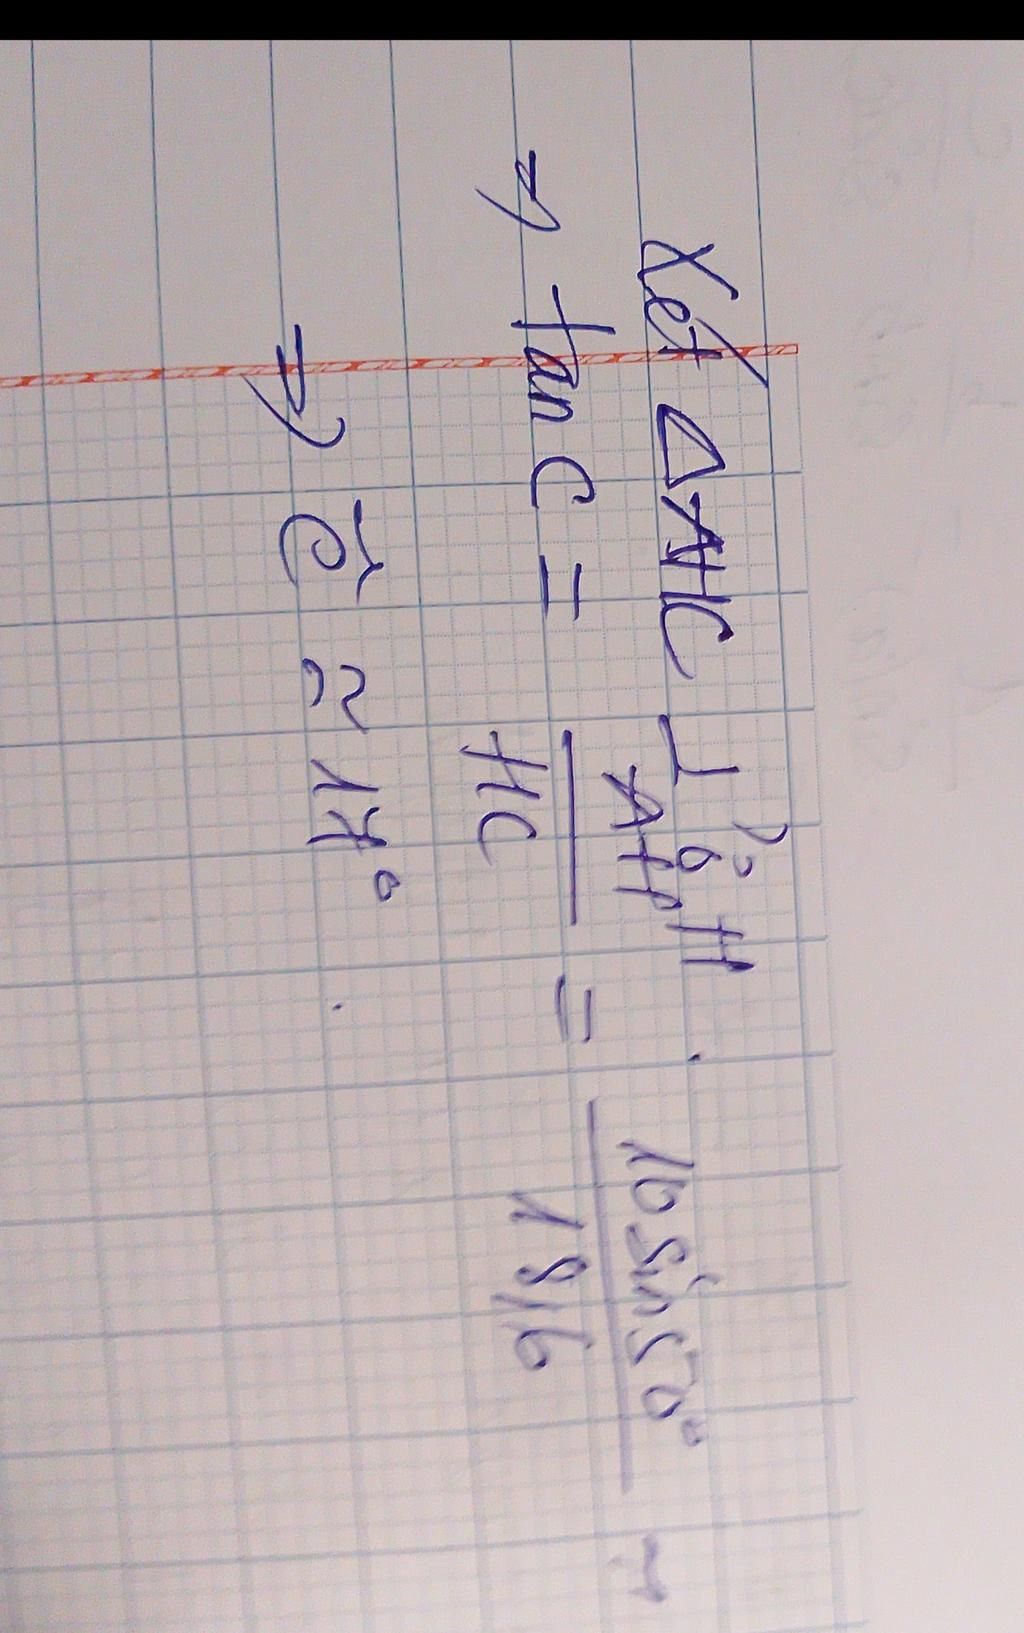 Xét ΔAHC ⊥ ở H.
⇒ tan C = AH/HC = 16 sin 50°/18,6 ≈
⇒ Ĉ ≈ 17°